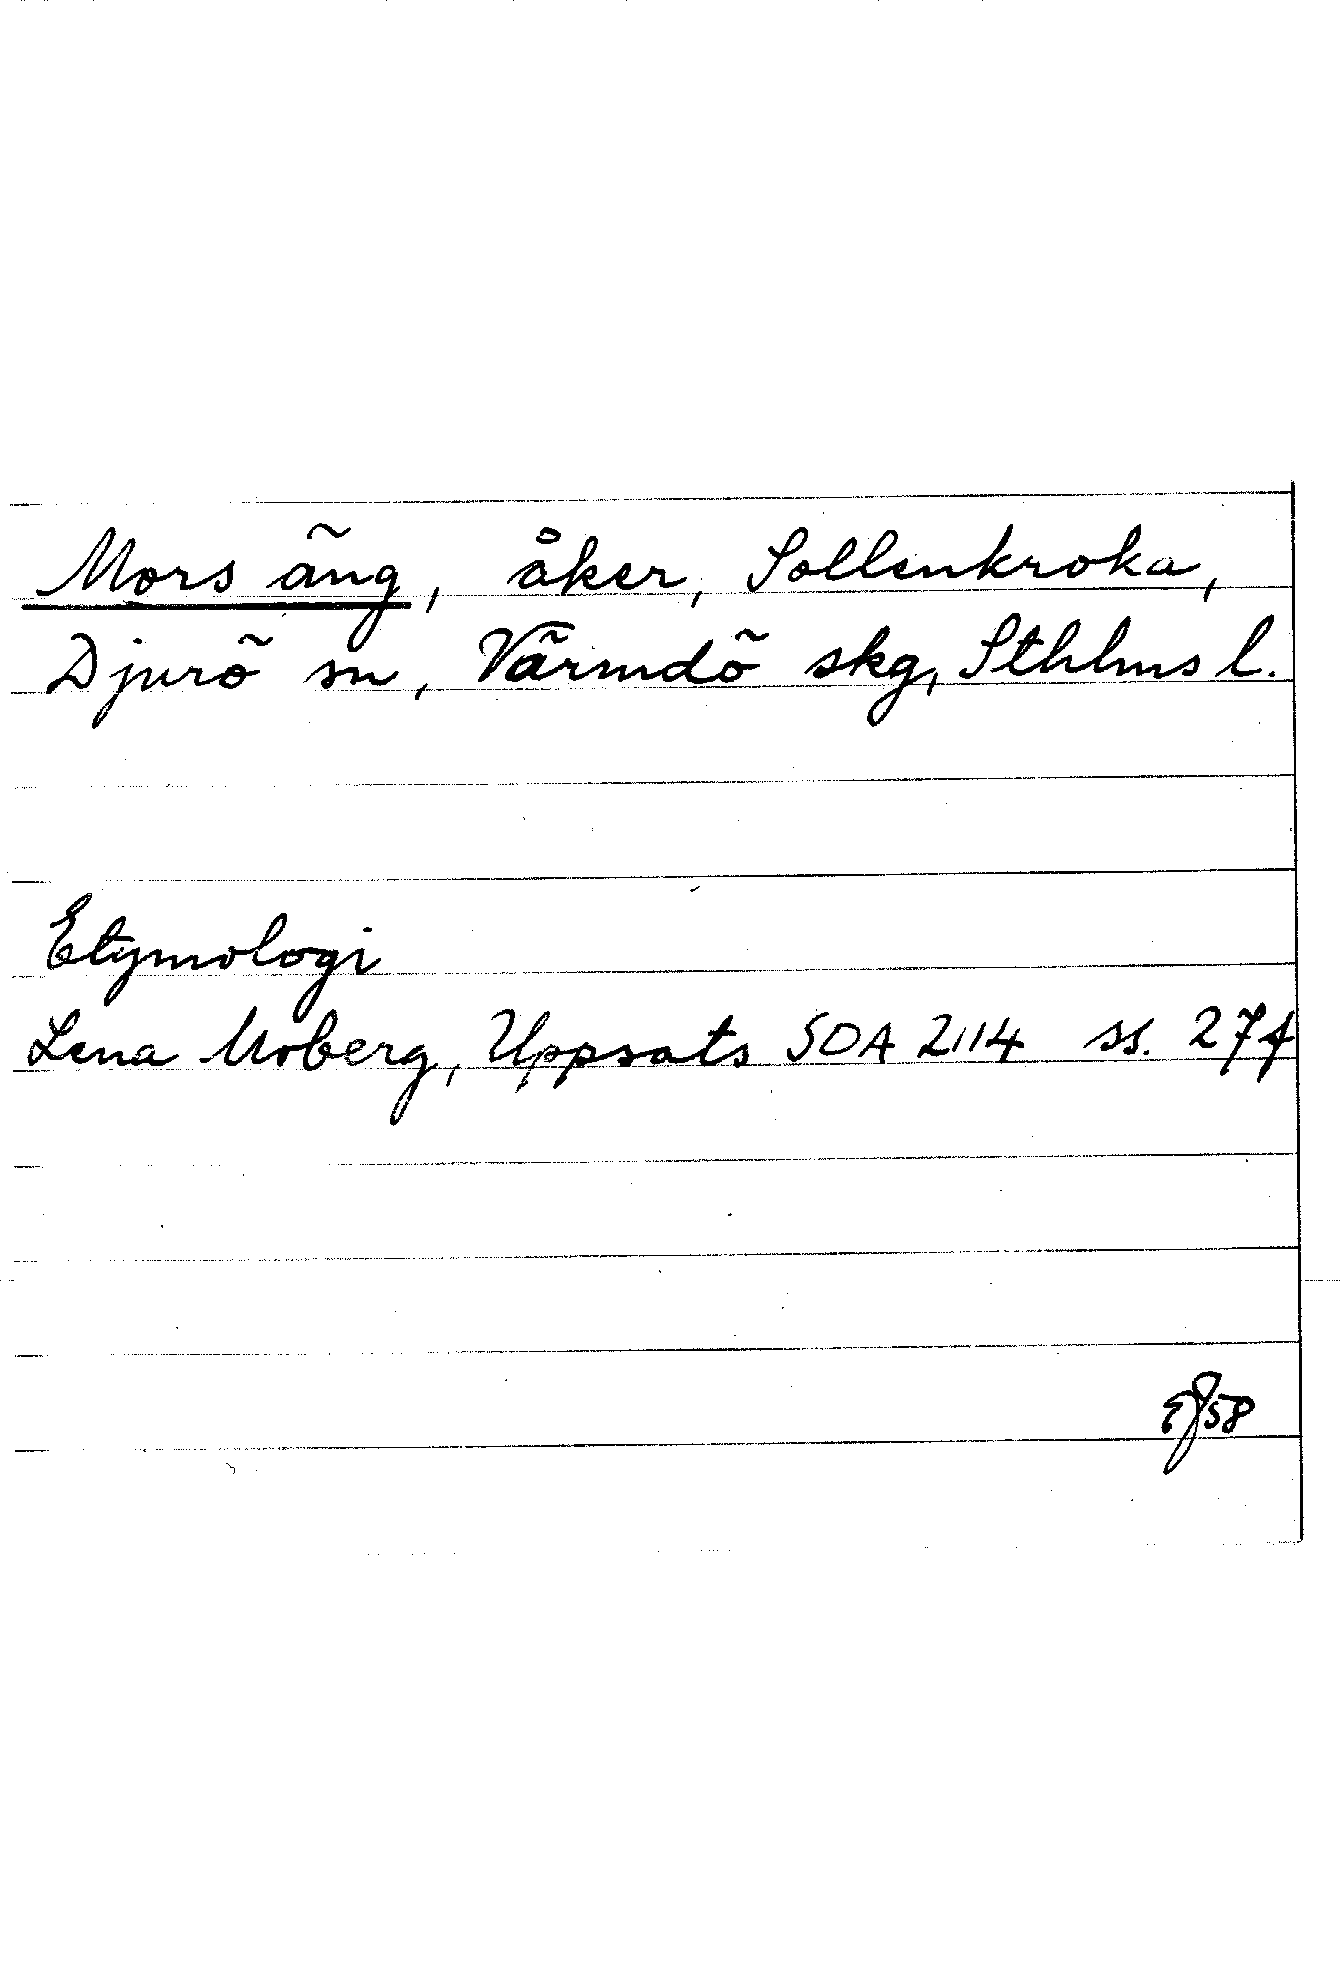 Mors äng, åker, Sollenkroka,
Djurö sn, Värmdö skg, Sthlms l.
Etymologi
Lena Moberg, Uppsats SOA 2114 ss. 27f
58